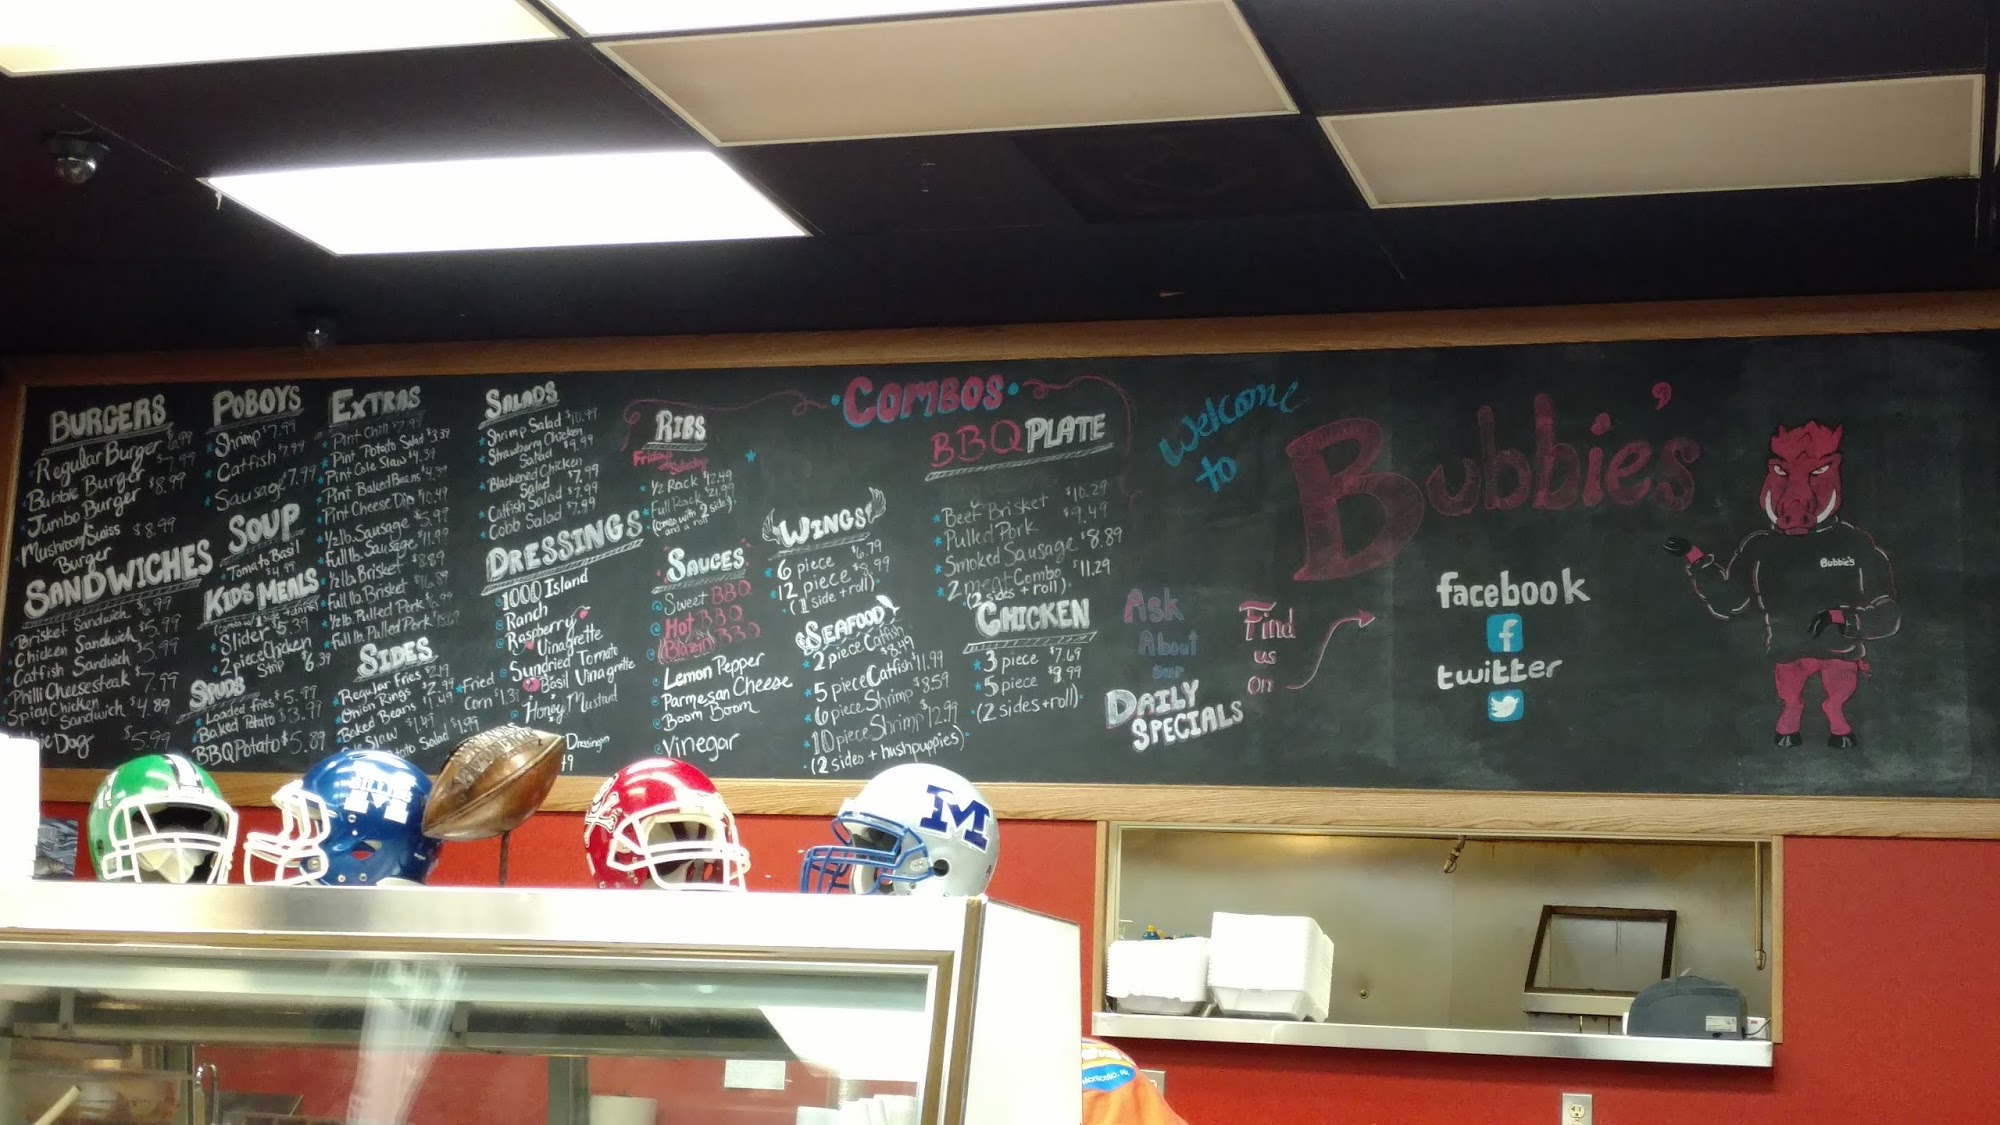 BURGERS
Regular Burger 6.99
Bubbie Burger $7.99
Jumbo Burger $8.99
Mushroom/Swiss Burger $8.99
SANDWICHES
Brisket Sandwich $6.99
Chicken Sandwich $5.99
Catfish Sandwich $5.99
Philli Cheesesteak $7.99
Spicy Chicken Sandwich $4.89
Dog $5.99
POBOYS
Shrimp $7.99
Catfish $7.99
Sausage $7.99
SOUP
Tomato Basil
$4.99
KIDS MEALS
Slider $5.39
2 piece Chicken Strip $6.39
SPUDS
Loaded Fries $5.99
Baked Potato $3.99
BBQ Potato $5.89
EXTRAS
Pint Chili $7.99
Pint Potato Salad $3.39
Pint Cole Slaw $4.39
Pint Baked Beans $4.39
Pint Cheese Dip $10.49
1/2 lb. Sausage $5.99
Full lb. Sausage $11.99
1/2 lb. Brisket $8.89
Full lb. Brisket $16.89
1/2 lb. Pulled Pork $6.99
Full lb. Pulled Pork
SIDES
Regular Fries $2.19
Onion Rings $2.99
Baked Beans $1.49
Slaw $1.49
Salad $1.99
Fried Corn
SALADS
Shrimp Salad $10.99
Strawberry Chicken Salad $9.99
Blackened Chicken Salad $7.99
Catfish Salad $7.99
Cobb Salad $7.99
DRESSINGS
1000 Island
Ranch
Raspberry Vinagrette
Sundried Tomato Basil Vinagrette
Honey Mustard
Dressing
COMBOS
RIBS
Fridays
Saturday
1/2 Rack $12.49
Full Rack $21.99
(comes with 2 sides and a roll)
SAUCES
Sweet BBQ
Hot BBQ
(Blazin) BBQ
Lemon Pepper
Parmesan Cheese
Boom Boom
Vinegar
WINGS
6 piece $6.79
12 piece $8.99
(1 side + roll)
SEAFOOD
2 piece Catfish $8.49
5 piece Catfish $11.99
6 piece Shrimp $8.59
10 piece Shrimp $12.99
(2 sides + hushpuppies)
BBQ PLATE
Beef Brisket $10.29
Pulled Pork $9.49
Smoked Sausage $8.89
2 meat Combo $11.29
(2 sides + roll)
CHICKEN
3 piece $7.69
5 piece $9.99
(2 sides + roll)
Welcome
to
Bubbie's
Ask
About
our
DAILY
SPECIALS
Find
us
on
facebook
f
twitter
Bubbie's
M